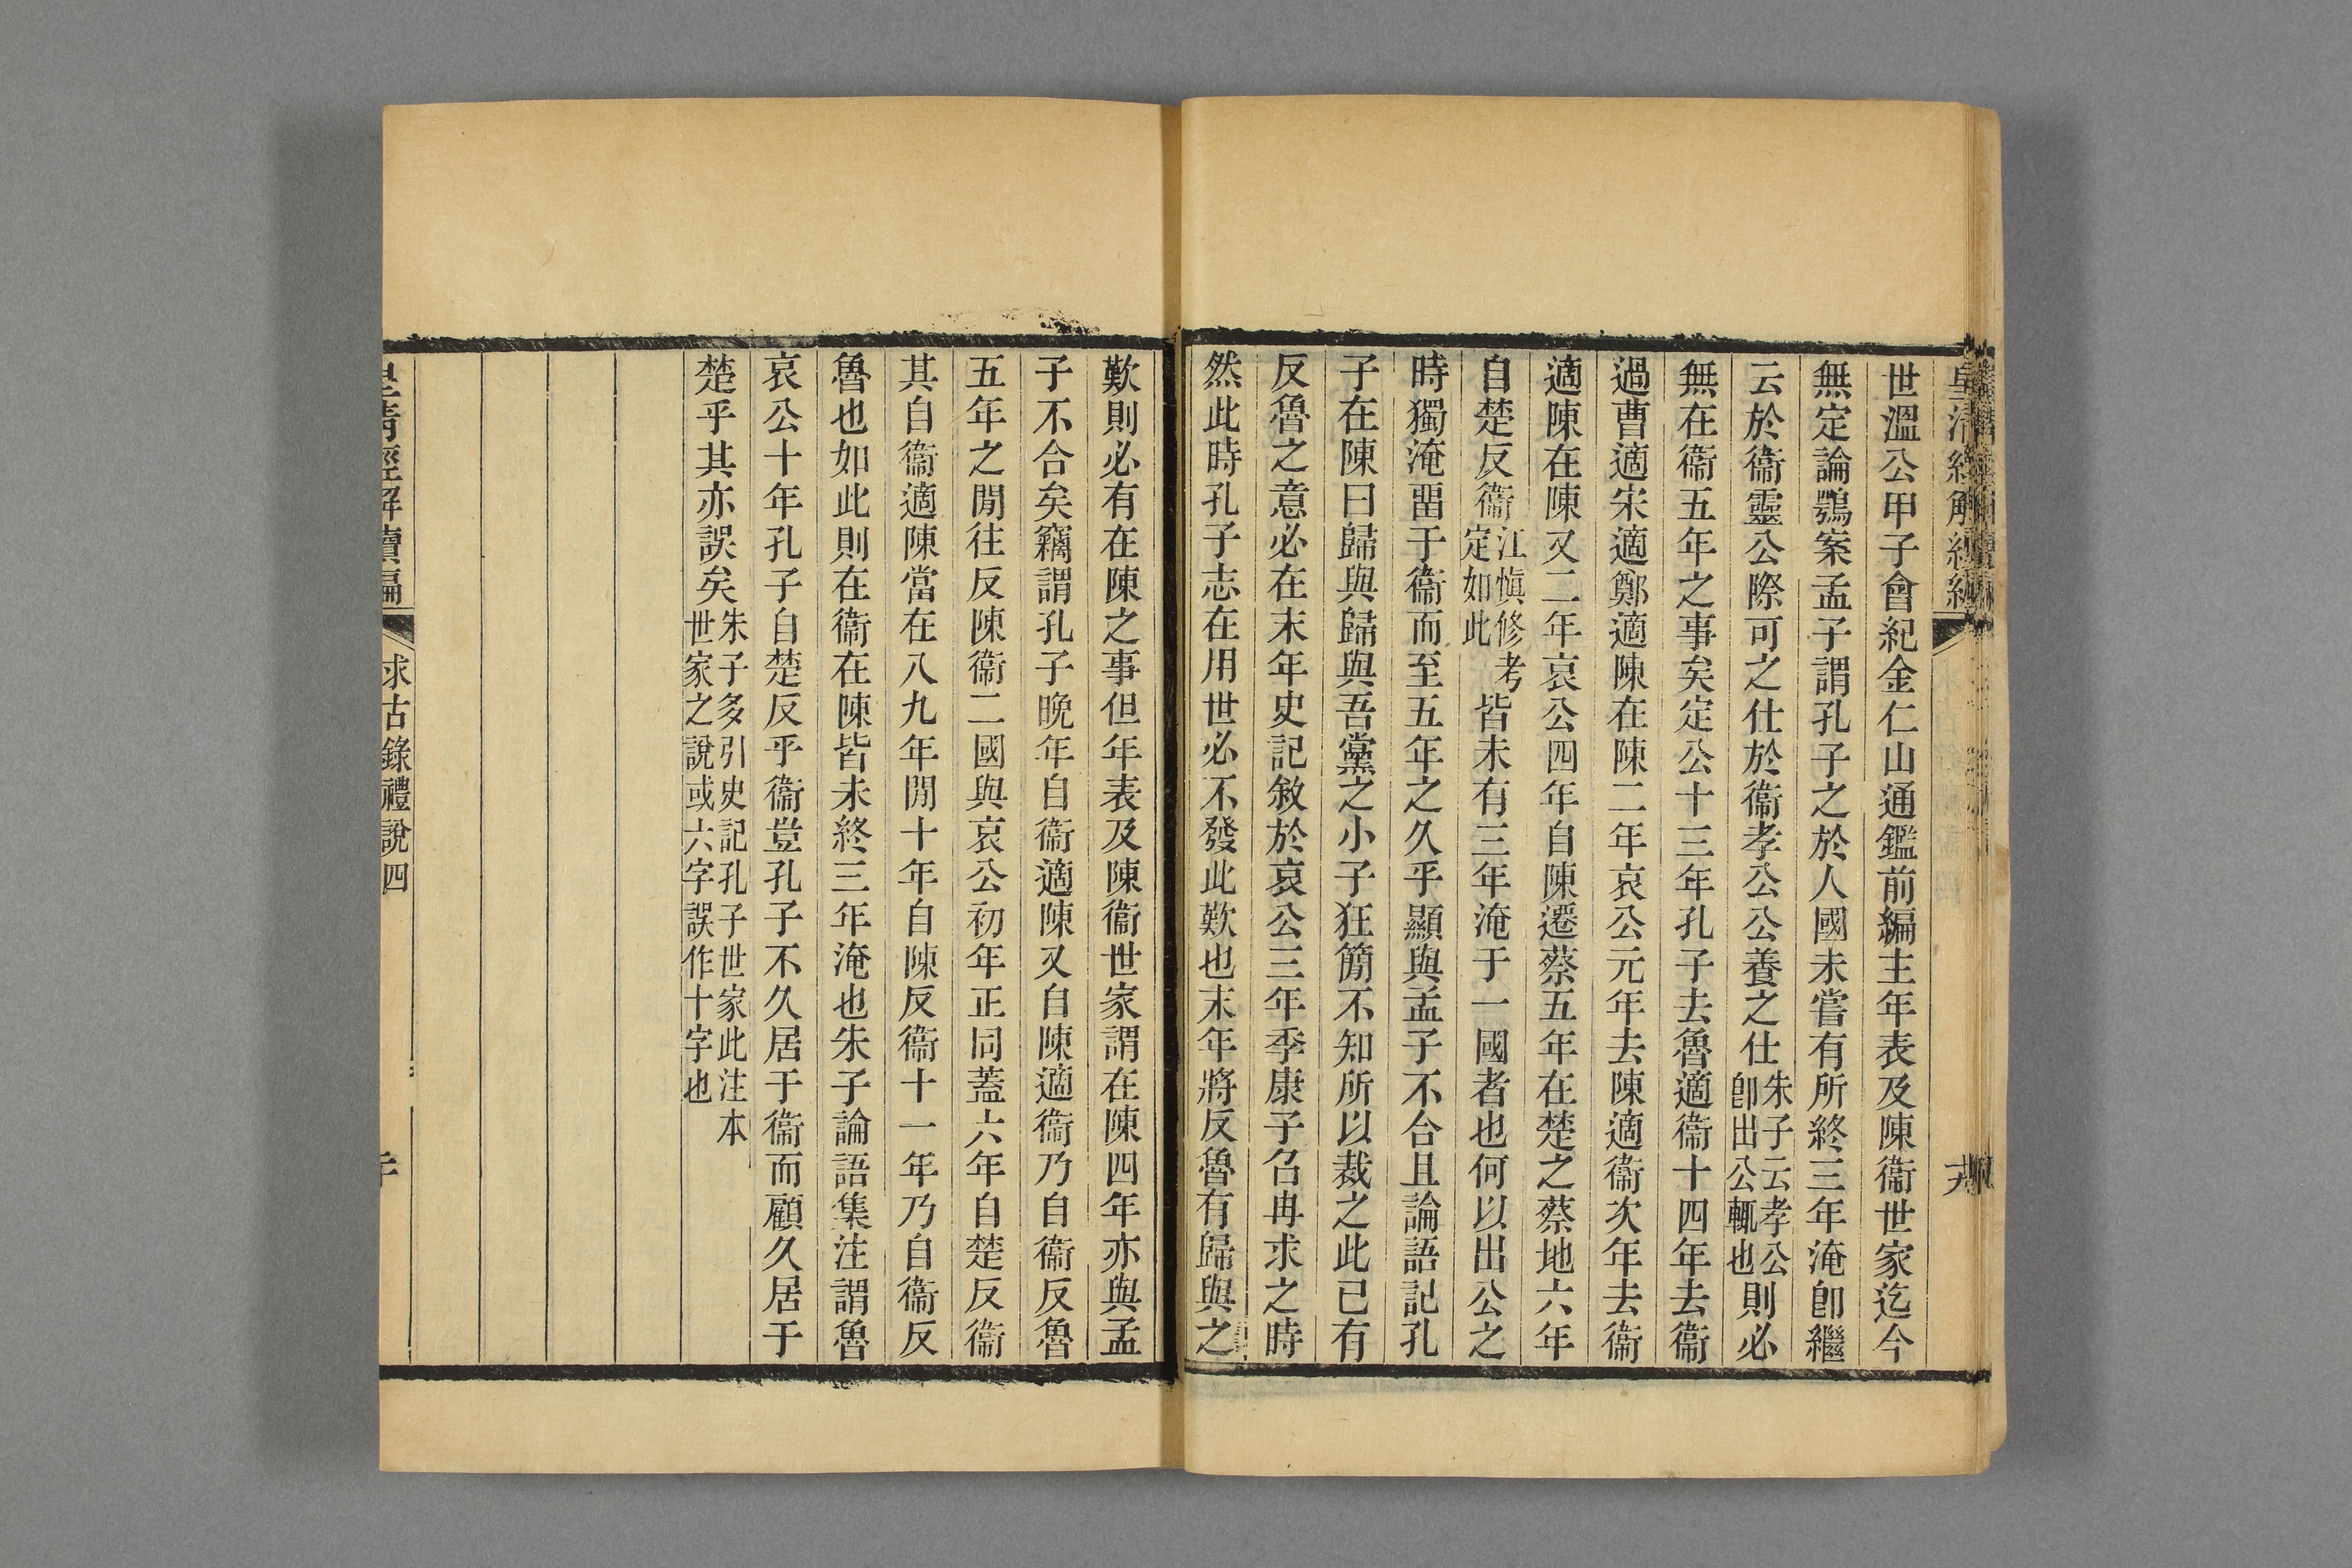 世溫公甲子會紀金仁山通鑑前編主年表及陳衞世家迄今
無定論鶚案孟子謂孔子之於人國未嘗有所終三年淹卽繼
云於衞靈公際可之仕於衞孝公公養之仕朱子云孝公卽出公輒也則必
無在衞五年之事矣定公十三年孔子去魯適衞十四年去衞
過曹適宋適鄭適陳在陳二年哀公元年去陳適衞次年去衞
適陳在陳又二年哀公四年自陳遷蔡五年在楚之蔡地六年
自楚反衞江愼修考定如此皆未有三年淹于一國者也何以出公之
時獨淹畱于衞而至五年之久乎顯與孟子不合且論語記孔
子在陳曰歸與歸與吾黨之小子狂簡不知所以裁之此已有
反魯之意必在末年史記敘於哀公三年季康子召冉求之時
然此時孔子志在用世必不發此歎也末年將反魯有歸與之
歎則必有在陳之事但年表及陳衞世家謂在陳四年亦與孟
子不合矣竊謂孔子晚年自衞適陳又自陳適衞乃自衞反魯
五年之閒往反陳衞二國與哀公初年正同蓋六年自楚反衞
其自衞適陳當在八九年閒十年自陳反衞十一年乃自衞反
魯也如此則在衞在陳皆未終三年淹也朱子論語集注謂魯
哀公十年孔子自楚反乎衞豈孔子不久居于衞而顧久居于
楚乎其亦誤矣朱子多引史記孔子世家此注本世家之說或六字誤作十字也
皇清經解續編
求古錄禮說四